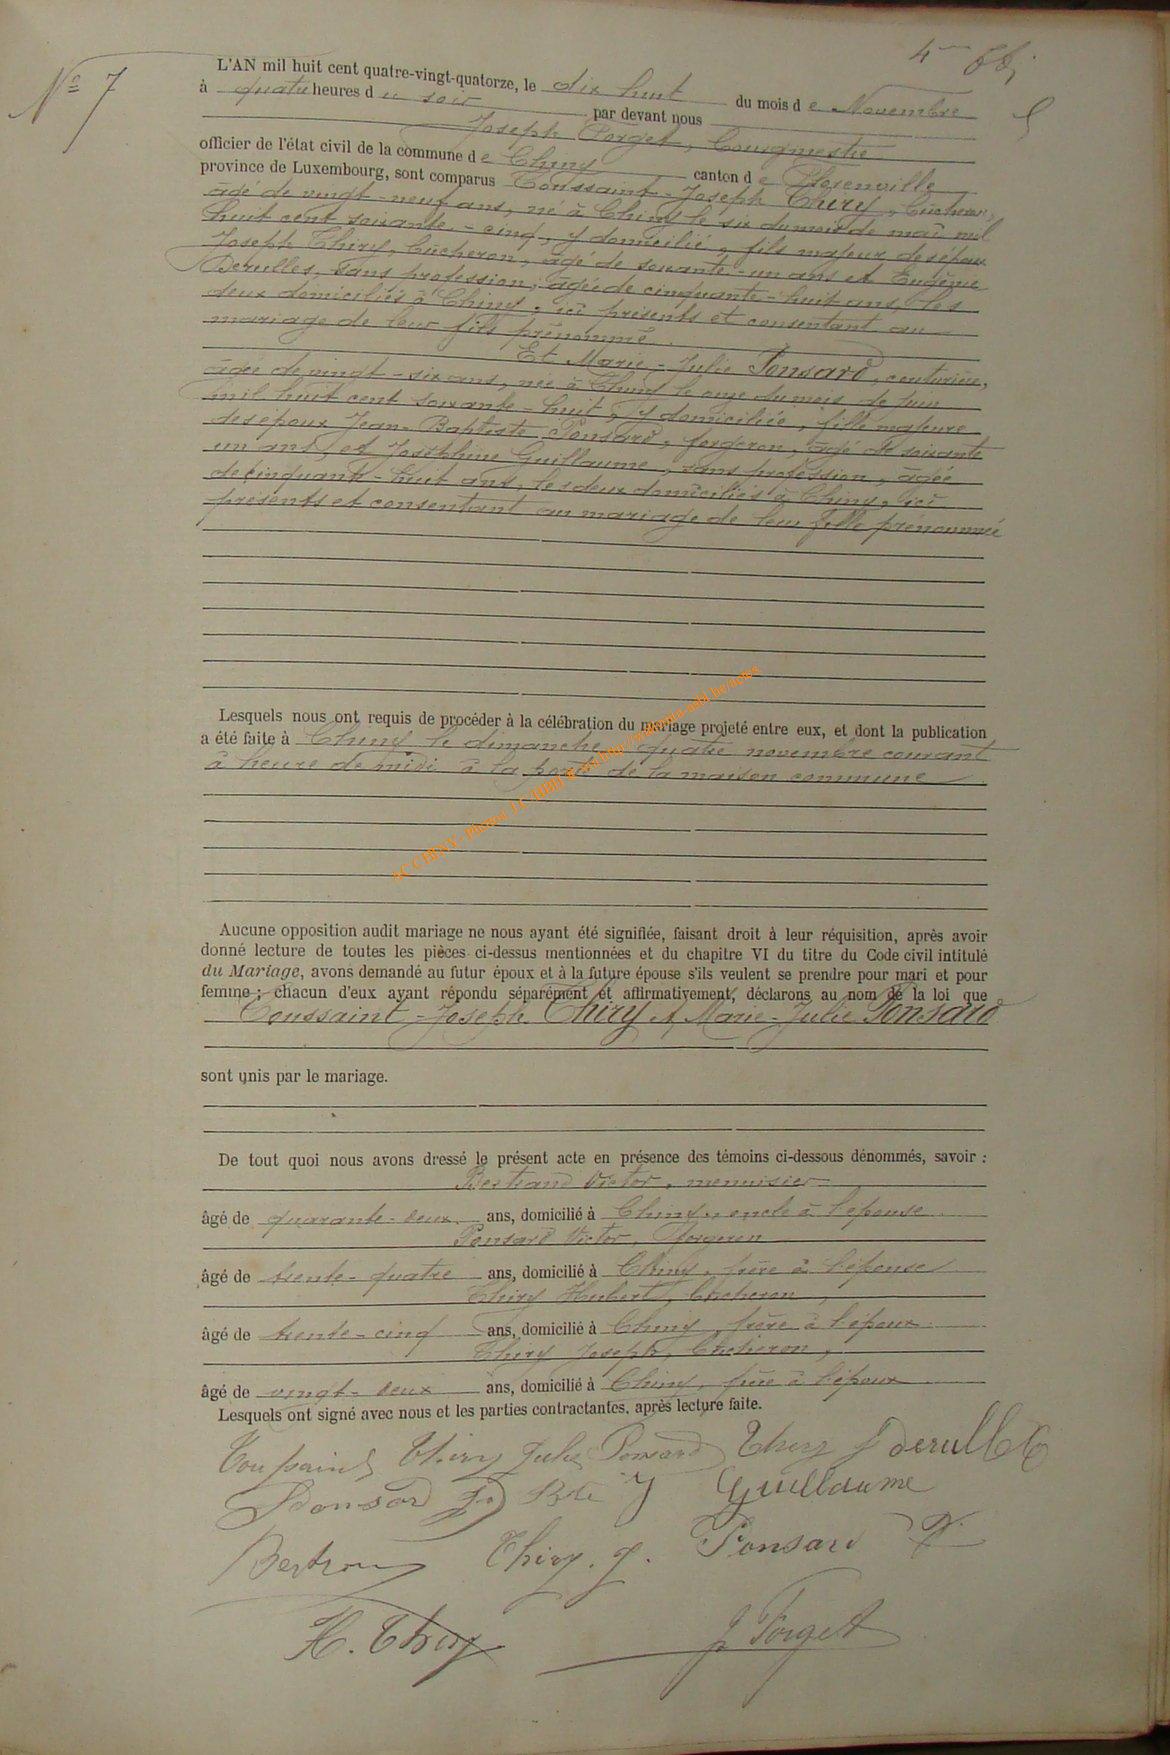 Nº 7
L'AN mil huit cent quatre-vingt-quatorze, le dix huit du mois de Novembre
à quatre heures du soir par devant nous
Joseph Forget, Bourgmestre
officier de l'état civil de la commune de Chiny canton de Florenville
province de Luxembourg, sont comparus Toussaint-Joseph Thiry, bûcheron,
âgé de vingt-neuf ans, né à Chiny le six du mois de mai mil
huit cent soixante-cinq, y domicilié, fils majeur des époux
Joseph Thiry, bûcheron, âgé de soixante-un ans et Eugénie
Derulles, sans profession, âgée de cinquante-huit ans, les
deux domiciliés à Chiny, ici présents et consentant au
mariage de leur fils prénommé.
Et Marie-Julie Ponsard, couturière,
âgée de vingt-six ans, née à Chiny le onze du mois de juin
mil huit cent soixante-huit, y domiciliée, fille majeure
des époux Jean-Baptiste Ponsard, forgeron, âgé de soixante
un ans, et Joséphine Guillaume, sans profession, âgée
de cinquante-huit ans, les deux domiciliés à Chiny, ici
présents et consentant au mariage de leur fille prénommée
Lesquels nous ont requis de procéder à la célébration du mariage projeté entre eux, et dont la publication
a été faite à Chiny le dimanche quatre novembre courant
à heure de midi à la porte de la maison commune
Aucune opposition audit mariage ne nous ayant été signifiée, faisant droit à leur réquisition, après avoir
donné lecture de toutes les pièces ci-dessus mentionnées et du chapitre VI du titre du Code civil intitulé
du Mariage, avons demandé au futur époux et à la future épouse s'ils veulent se prendre pour mari et pour
femme ; chacun d'eux ayant répondu séparément et affirmativement, déclarons au nom de la loi que
Toussaint-Joseph Thiry et Marie-Julie Ponsard
sont unis par le mariage.
De tout quoi nous avons dressé le présent acte en présence des témoins ci-dessous dénommés, savoir :
Bertrand Victor, menuisier
âgé de quarante-deux ans, domicilié à Chiny, oncle à l'épouse
Ponsard Victor, forgeron
âgé de trente-quatre ans, domicilié à Chiny, frère à l'épouse
Thiry Hubert, bûcheron,
âgé de trente-cinq ans, domicilié à Chiny, frère à l'époux
Thiry Joseph, bûcheron,
âgé de vingt-deux ans, domicilié à Chiny, frère à l'époux
Lesquels ont signé avec nous et les parties contractantes, après lecture faite.
Toussaint Thiry Julie Ponsard Thiry J derulle E
Ponsard J Bte J Guillaume
Bertrand Thiry. J. Ponsard V
H. Thiry J Forget